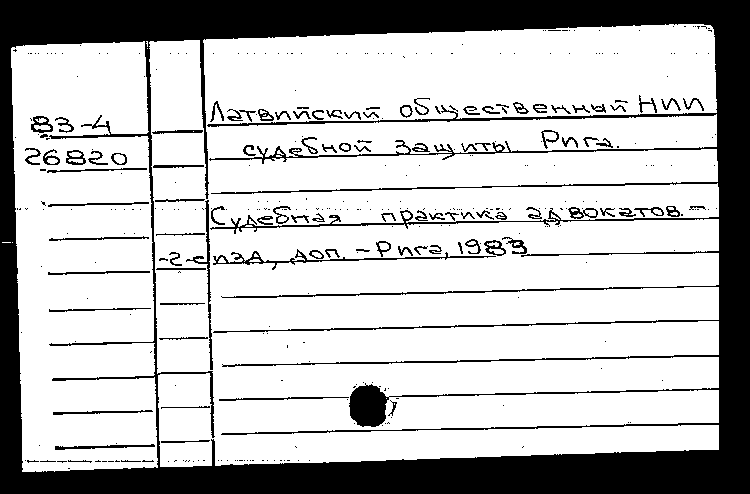 83-4
26820
Латвийский общественный НИИ
судебной защиты. Рига.
Судебная практика адвокатов. -
-2-е изд., доп. - Рига, 1983